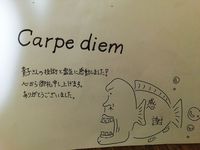 Carpe diem
さんの技術と製品に感動しました！
心から御礼申し上げます。
ありがとうございました。
感
謝